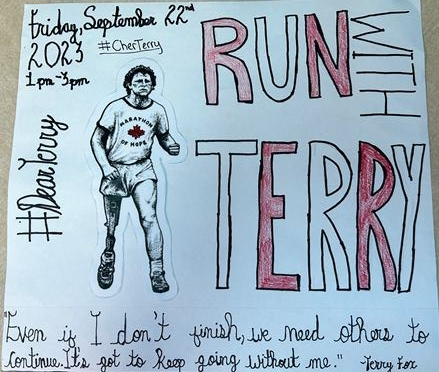 Friday, September 22nd
2023
1pm-3pm
#CherTerry
#DearTerry
MARATHON
OF HOPE
RUN
WITH
TERRY
"Even if I don't finish, we need others to
Continue. It's got to keep going without me." -Terry Fox